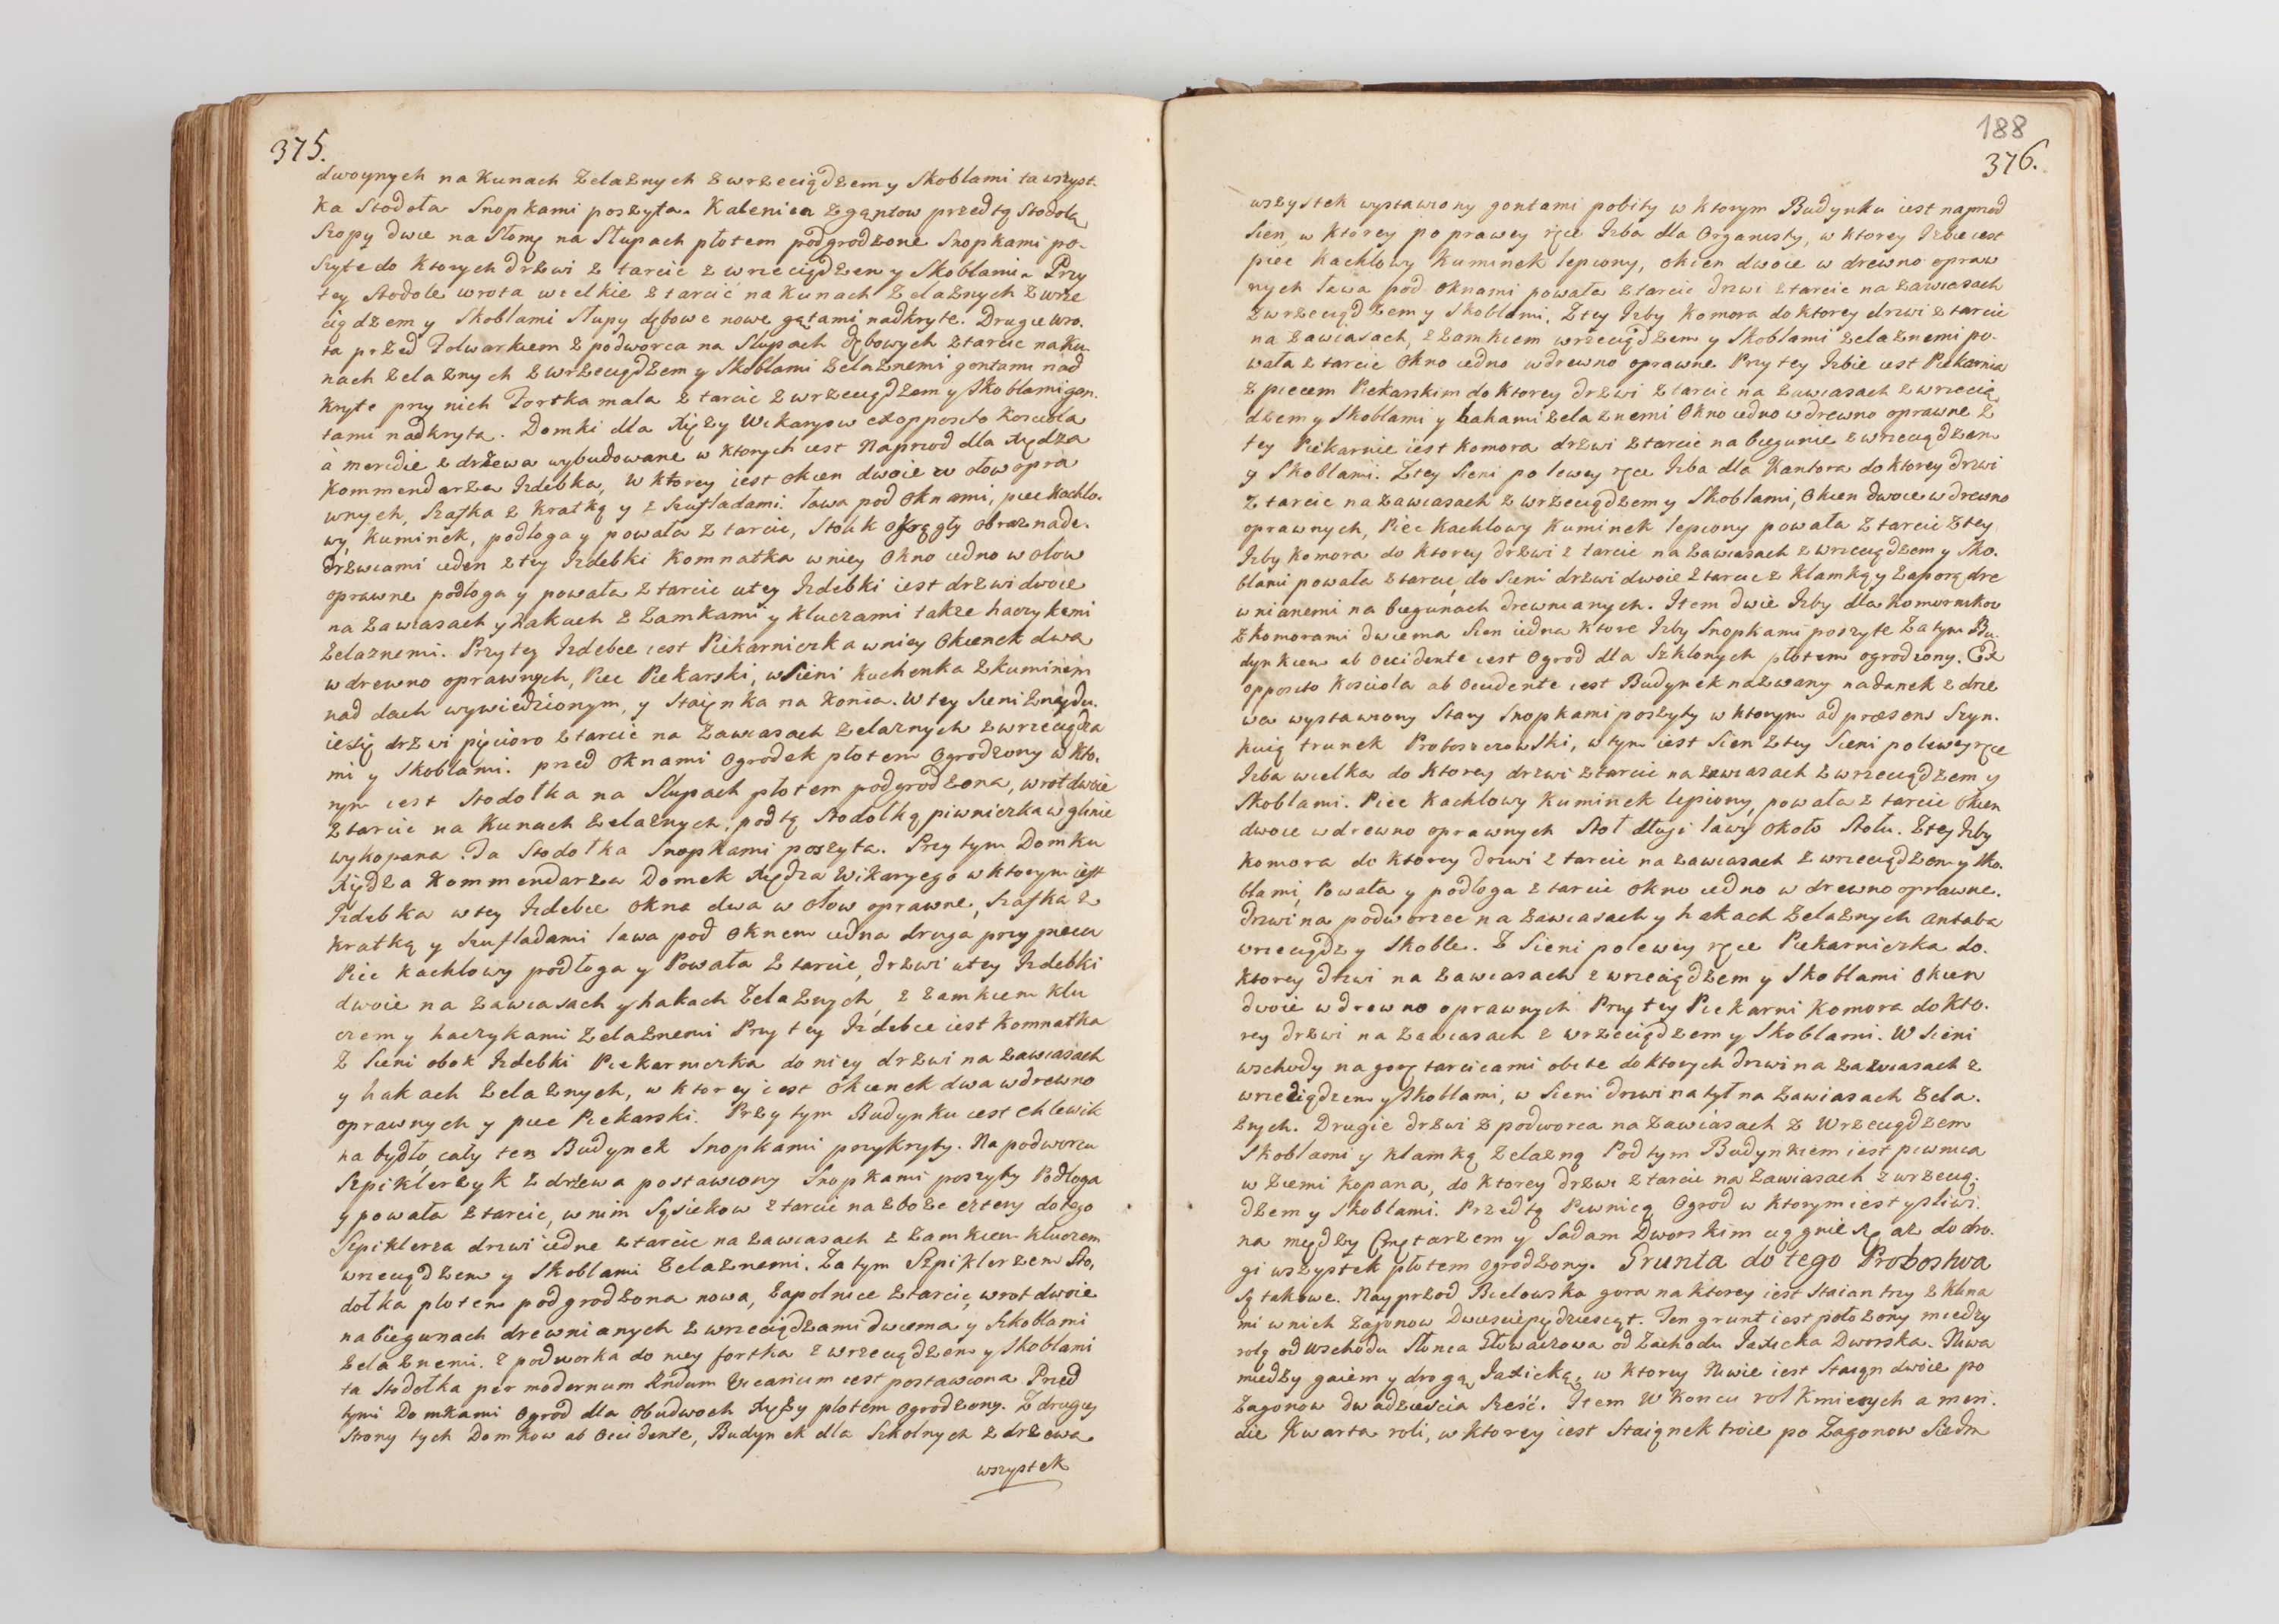 375.
dwoynych na Kunach Zelaznych z wrzeciądzem y Skoblami ta wszyst-
ka Stodoła Snopkami poszyta. Kalenica z gątow przed tą Stodołą
Szopy dwie na Słomę na Słupach płotem podgrodzone Snopkami po-
szyte do ktorych drzwi z tarcic z wrzeciądzem y Skoblami. Przy
tey Stodole wrota wielkie z tarcic na Kunach Zelaznych z wrze
ciądzem y Skoblami Słupy dębowe nowe gątami nadkryte. Drugie wro-
ta przed Folwarkiem z podworca na Słupach dębowych z tarcic na ku-
nach zelaznych z wrzeciądzem y Skoblami Zelaznemi gontami nad
kryte przy nich Fortka mala z tarcic z wrzeciądzem y Skoblami gon-
tami nadkryta. Domki dla Xięzy Wikaryow ex opposito Kosciola
à meridie z drzewa wybudowane w ktorych iest Naprzod dla Xiędza
Kommendarza Izdebka, w ktorey iest okien dwoie w ołow opra
wnych, Szafka z kratką y z Szufladami. ława pod oknami, piec kachlo-
wy, kuminek, podłoga y powała z tarcic, Stolik okrągły obraz nade-
drzwiami ieden z tey Izdebki Komnatka w niey Okno iedno w ołow
oprawne podłoga y powała z tarcic u tey Izdebki iest drzwi dwoie
na zawiasach y hakach z Zamkami y kluczami takze haczykami
zelaznemi. Przy tey Izdebce iest Piekarniczka w niey Okienek dwa
w drewno oprawnych, Piec Piekarski, w Sieni kuchenka z kuminem
nad dach wywiedzionym, y Staienka na Konia. W tey Sieni znaydu-
ie się drzwi pięcioro z tarcic na zawiasach zelaznych z wrzeciądza
mi y Skoblami. przed oknami ogrodek płotem ogrodzony w kto-
rym iest Stodołka na Słupach płotem podgrodzona, wrot dwoie
z tarcic na Kunach zelaznych, pod tą Stodołką piwniczka w glinie
wykopana. Ta Stodołka Snopkami poszyta. Przy tym Domku
Xiędza Kommendarza Domek Xiędza Wikaryego w ktorym iest
Izdebka w tey Izdebce okna dwa w ołow oprawne, Szafka z
kratką y szufladami ława pod oknem iedna druga przy piecu
Piec kachlowy podłoga y Powała z tarcic, drzwi u tey Izdebki
dwoie na zawiasach y hakach Zelaznych, z zamkiem klu
czem y haczykami Zelaznemi Przy tey Izdebce iest Komnatka
Z Sieni obok Izdebki Piekarniczka do niey drzwi na zawiasach
y hakach zelaznych, w ktorey iest okienek dwa w drewno
oprawnych y piec Piekarski. Przy tym Budynku iest chlewik
na bydło, cały ten Budynek Snopkami przykryty. Na podworcu
Szpiklerzyk z drzewa postawiony Snopkami poszyty Podłoga
y powała z tarcic, w nim Sąsiekow z tarcic na zboze cztery do tego
Szpiklerza drzwi iedne z tarcic na zawiasach z zamkiem kluczem
wrzeciądzem y Skoblami zelaznemi. Za tym Szpiklerzem Sto-
dołka płotem podgrodzona nowa, Zapolnice z tarcic, wrot dwoie
na biegunach drewnianych z wrzeciądzami dwiema y Skoblami
zelaznemi. z podworka do niey fortka z wrzeciądzem y Skoblami
ta Stodołka per modernum Rndum Vicarium iest postawiona Przed
tymi Domkami Ogrod dla Obudwoch Xięzy płotem Ogrodzony. Z drugiey
Strony tych Domkow ab Occidente, Budynek dla Szkolnych z drzewa
wszystek
188
376.
wszystek wystawiony gontami pobity w ktorym Budynku iest naprzod
Sien, w ktorey po prawey ręce Izba dla Organisty, w ktorey Izbie iest
piec kachlowy kuminek lepiony, okien dwoie w drewno opraw
nych ława pod oknami powała z tarcic drzwi z tarcic na zawiasach
z wrzeciądzem y Skoblami. Z tey Izby komora do ktorey drzwi z tarcic
na zawiasach, z zamkiem wrzeciądzem y Skoblami zelaznemi po-
wała z tarcic Okno iedno w drewno oprawne. Przy tey Izbie iest Piekarnia
z piecem Piekarskim do ktorey drzwi z tarcic na zawiasach z wrzecią
dzem y Skoblami y hakami zelaznemi Okno iedno w drewno oprawne z
tey Piekarnie iest komora drzwi z tarcic na biegunie z wrzeciądzem
y Skoblami. Z tey Sieni po lewey ręce Izba dla Kantora do ktorey drzwi
z tarcic na zawiasach z wrzeciądzem y Skoblami, Okien dwoie w drewno
oprawnych, Piec Kachlowy kuminek lepiony powała z tarcic z tey
Izby komora do ktorey drzwi z tarcic na zawiasach z wrzeciądzem y Sko-
blami powała z tarcic, do Sieni drzwi dwoie z tarcic z klamką y zaporą dre
wnianemi na biegunach drewnianych. Item dwie Izby dla Komornikow
z komorami dwiema Sien iedna ktore Izby Snopkami poszyte Za tym Bu-
dynkiem ab Occidente iest Ogrod dla Szklonych płotem ogrodzony. Ex
opposito Kosciola ab Occidente iest Budynek nazwany nadanek z drze
wa wystawiony Stary Snopkami poszyty w ktorym ad præsens Szyn-
kuią trunek Proboszczowski, w tym iest Sien z tey Sieni po lewey ręce
Izba wielka do ktorey drzwi z tarcic na zawiasach z wrzeciądzem y
Skoblami. Piec kachlowy kuminek lepiony, powała z tarcic okien
dwoie w drewno oprawnych Stoł długi ławy około Stołu. Z tey Izby
komora do ktorey drzwi z tarcic na zawiasach z wrzeciądzem y Sko-
blami, Powała y podłoga z tarcic okno iedno w drewno oprawne.
drzwi na podworzec na zawiasach y hakach zelaznych antaba
wrzeciądz y Skoble. Z Sieni po lewey ręce Piekarniczka do-
ktorey drzwi na zawiasach z wrzeciądzem y Skoblami Okien
dwoie w drewno oprawnych Przy tey Piekarni Komora do kto-
rey drzwi na zawiasach z wrzeciądzem y Skoblami. W Sieni
wschody na gorę tarcicami obite do ktorych drzwi na zawiasach z
wrzeciądzem y Skoblami, w Sieni drzwi na tył na zawiasach zela-
znych. Drugie drzwi z podworca na zawiasach z Wrzeciądzem
Skoblami y klamką zelazną Pod tym Budynkiem iest piwnica
w Ziemi kopana, do ktorey drzwi z tarcic na zawiasach z wrzecią-
dzem y Skoblami. Przed tą Piwnicą Ogrod w ktorym iest y sliwi-
na między Cmętarzem y Sadam Dworskim ciągnie się az do dro-
gi wszystek płotem ogrodzony. Grunta do tego Probostwa
są takowe. Nayprzod Bielowska gora na ktorey iest Staian trzy z klina
mi w nich Zagonow Dwiescie pędziesiąt. Ten grunt iest położony miedzy
rolą od wschodu Słonca Głowaczowa od Zachodu Jaxicka Dworska. Niwa
miedzy gaiem y drogą Jaxicką, w ktorey Niwie iest Staian dwoie po
Zagonow dwadziescia Szesć. Item W Koncu rol Kmiecych a meri-
die Kwarta roli, w ktorey iest Staianek troie po Zagonow Siedm